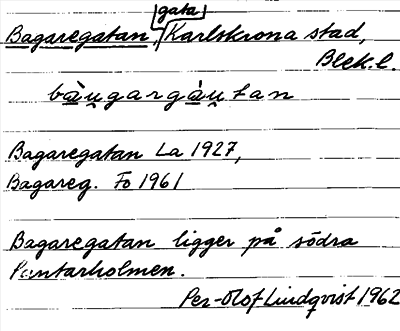 gata
Bagaregatan, Karlskrona stad,
Blek.l.
bàu̯gargàu̯tan
Bagaregatan La 1927,
Bagareg. Fo 1961
Bagaregatan ligger på södra
Pantarholmen.
Per-Olof Lindqvist 1962